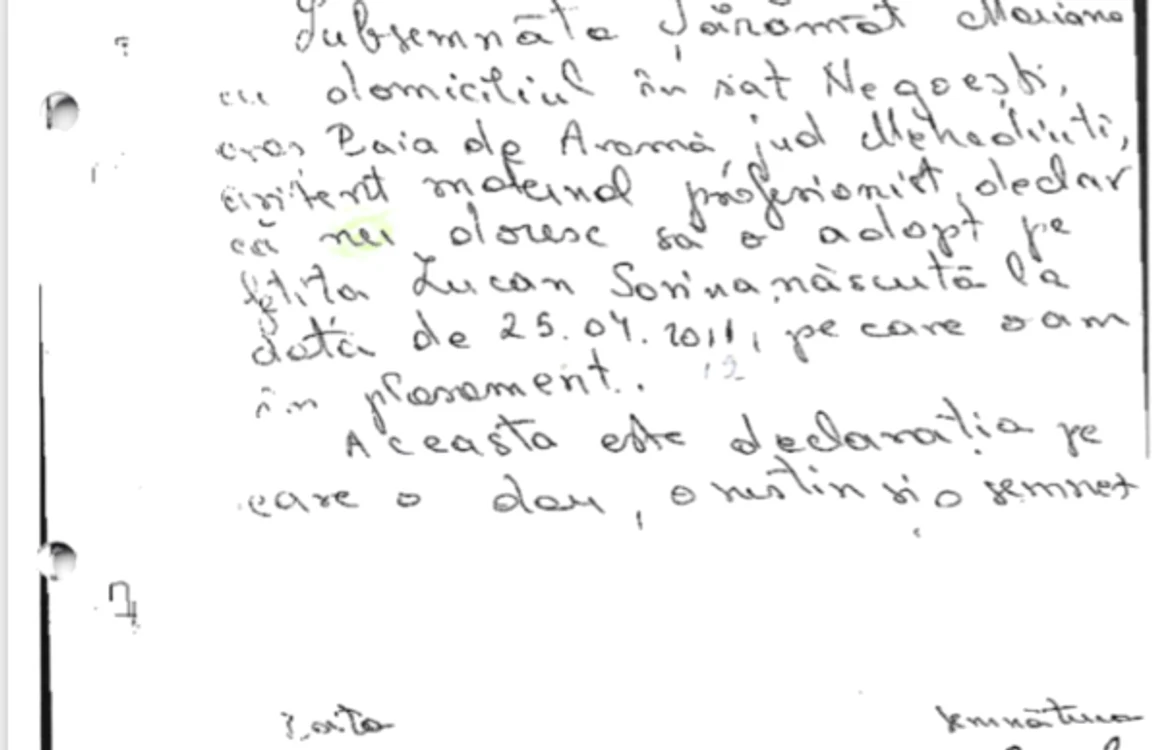 Subsemnāta Șărămăt Mariana
cu domiciliul în sat Negoești,
oraș Baia de Aramă, jud Mehedinti,
asistent maternal profesionist, declar
că nu doresc să o adopt pe
fetița Lucan Sorina, născută la
data de 25.04.2011, pe care o am
în plasament.
12
Aceasta este declarația pe
care o dau, o susțin și o semnez
Data
Semnătura